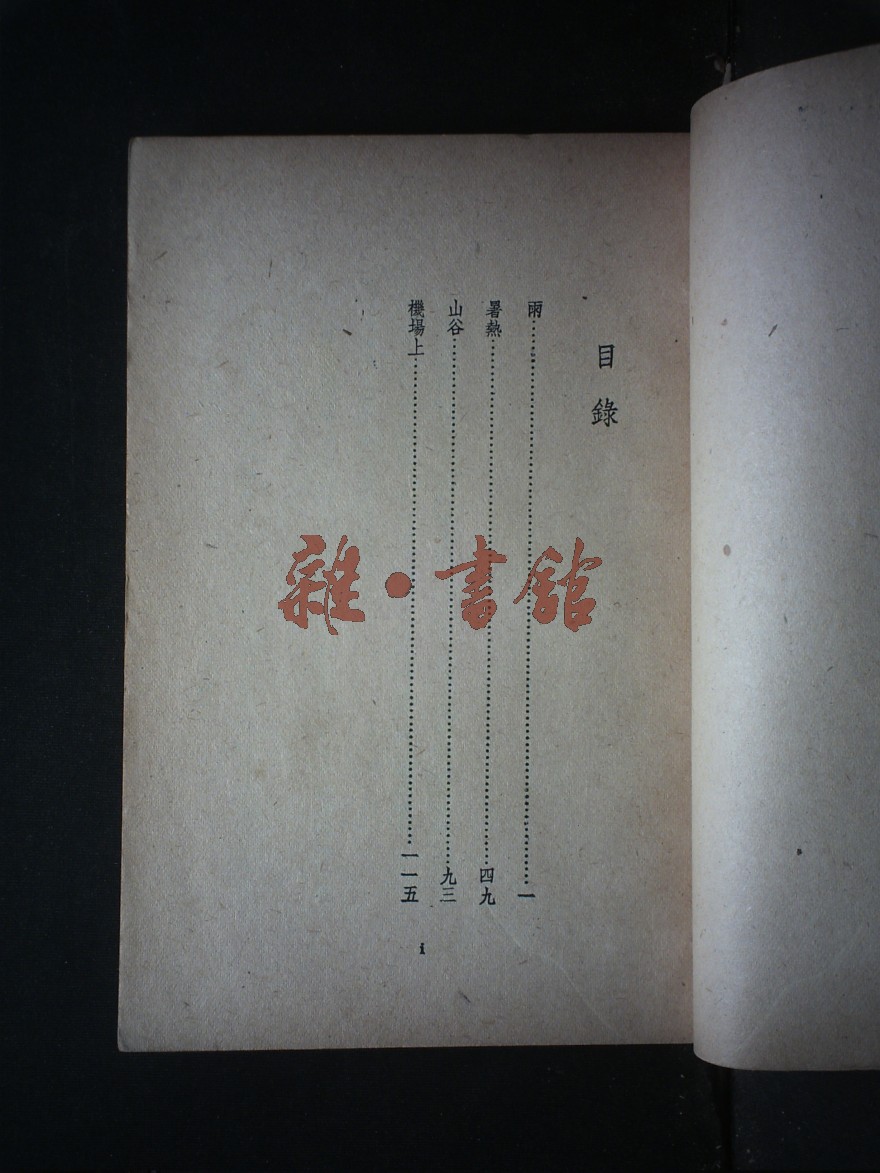 目錄
雨……………………一
暑熱……………………四九
山谷……………………九三
機場上……………………一一五
i
雜·書館